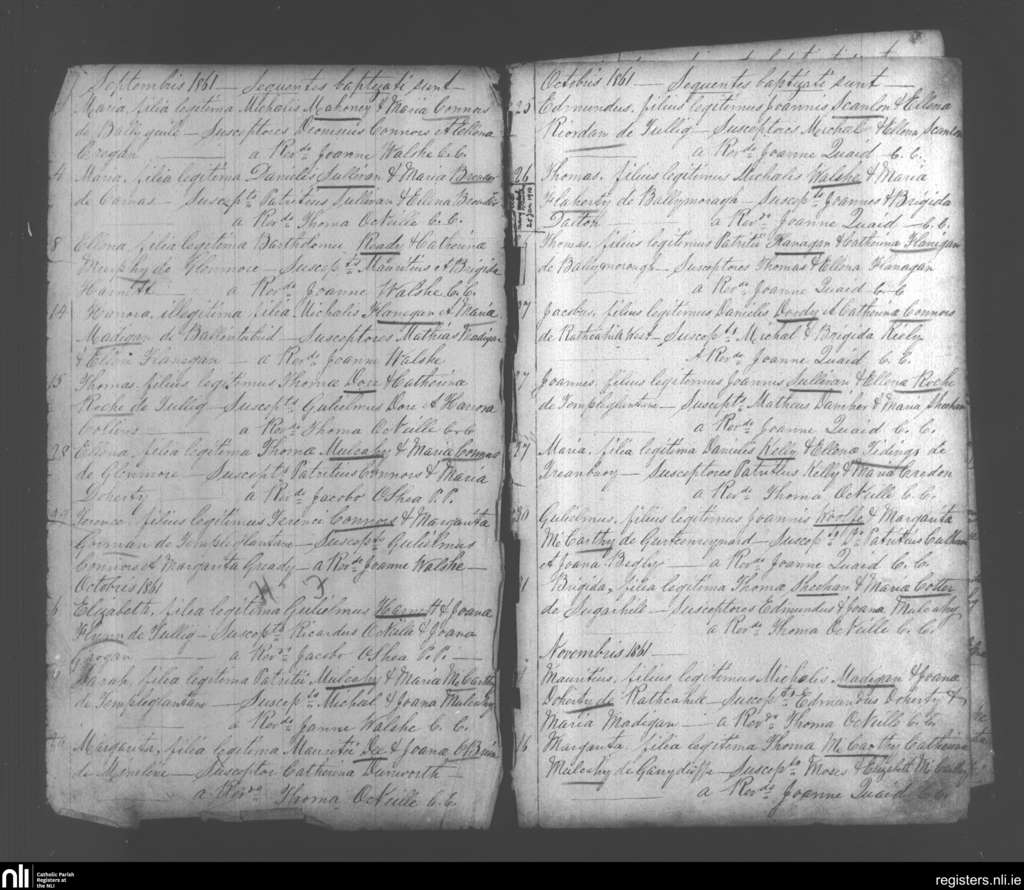 Septembris 1861 — Sequentes baptizati sunt —
Maria, filia legitima Michaelis Mahoney & Maria Connors
de Ballyguile — Susceptores Dionisius Connors & Ellena
Crogan — a Revdo Joanne Walshe C.C.
4 Maria, filia legitima Danielis Sullivan & Maria
de Camas — Suscepts Patritius Sullivan & Ellena
a Revdo Thoma O'Neille C.C.
8 Ellena, filia legitima Bartholomei Ready & Catherina
Murphy de Glenmore — Suscepts Mauritius & Brigida
Harnett — a Revdo Joanne Walshe C.C.
14 Hanora, illegitima filia Michaelis Flanegan & Maria
Madigan de Ballintubid — Susceptores Mathias Madigan
& Eliza Flanegan — a Revdo Joanne Walshe
15 Thomas, filius legitimus Thoma Dore & Catherina
Roche de Tullig — Suscepts Gulielmus Dore & Hanora
Collins — a Revdo Thoma O'Neille C.C.
28 Ellena, filia legitima Thoma Mulcahy & Maria Connors
de Glenmore — Suscepts Patritius Connors & Maria
Doherty — a Revdo Jacobo O'Shea P.P.
29 Terence, filius legitimus Terenci Connors & Margarita
Gorman de Templeglantane — Suscepts Gulielmus
Connors et Margarita Gready — a Revdo Joanne Walshe —
Octobris 1861
6 Elizabeth, filia legitima Gulielmus Harnett & Joana
Flynn de Tullig — Suscepts Ricardus O'Neille & Joana
Grogan — a Revdo Jacobo O'Shea P.P. —
Sarah, filia legitima Patritii Mulcahy & Maria McCarthy
de Templeglantane — Suscepts Michael & Joana Mulcahy
a Revdo Joanne Walshe C.C.
Margarita, filia legitima Mauritii Lee & Joana O'Brien
de — Susceptor Catherina Dunworth —
a Revdo Thoma O'Neille C.C.
Octobris 1861 — Sequentes baptizati sunt —
25 Edmundus, filius legitimus Joannis Scanlon & Ellena
Riordan de Tullig — Susceptores Michael & Ellena Scanlon
a Revdo Joanne Quaid C.C.
26 Thomas, filius legitimus Michaelis Walshe & Maria
Flaherty de Ballymoragh — Suscepts Joannes & Brigida
Dalton a Revdo Joanne Quaid C.C.
Thomas, filius legitimus Patritii Flanagan & Catherina Flanigan
de Ballymorough — Susceptores Thomas & Ellena Flanagan
a Revdo Joanne Quaid C.C.
27 Jacobus, filius legitimus Danielis Doody & Catherina Connors
de Rathcahill West — Suscepts Michal & Brigida Kiely
A Revdo Joanne Quaid C.C.
27 Joannes, filius legitimus Joannis Sullivan & Ellena Roche
de Templeglantane — Suscepts Matheus Danihor & Maria Sheehan
a Revdo Joanne Quaid C.C.
27 Maria, filia legitima Danielis Kelly & Ellena Tidings de
Meanbony — Susceptores Patritius Kelly & Maria
a Revdo Thoma O'Neille C.C.
30 Gulielmus, filius legitimus Joannis Woolfe & Margarita
McCarthy de — Suscepts Patritius
et Joana Begley — a Revdo Joanne Quaid C.C.
31 Brigida, filia legitima Thoma Sheehan & Maria Cotter
de Sugarhill — Susceptores Edmundus & Joana Mulcahy
a Revdo Thoma O'Neille C.C.
Novembris 1861 —
Mauritius, filius legitimus Michaelis Madigan & Joana
Doherty de Rathcahill — Suscepts Edmondus Doherty &
Maria Madigan — a Revdo Thoma O'Neille C.C.
16 Margarita, filia legitima Thoma McCarthy Catherina
Mulcahy de Garryduff — Suscepts Moses & Elizabeth McCarthy
a Revdo Joanne Quaid C.C.
nli Catholic Parish
Registers at
the NLI
registers.nli.ie